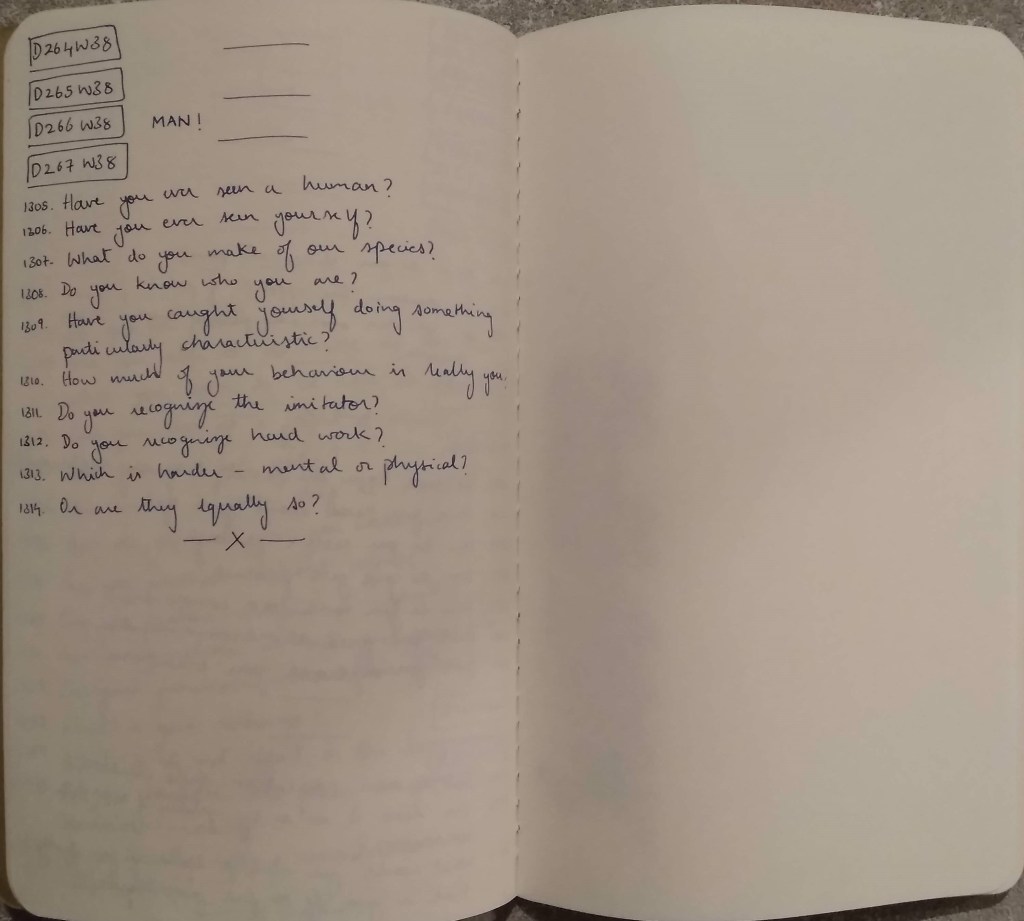 D264W38
D265 W38
D266 W38 MAN!
D267 W38
1305. Have you ever seen a human?
1306. Have you ever seen yourself?
1307. What do you make of our species?
1308. Do you know who you are?
1309. Have you caught yourself doing something
particularly characteristic?
1310. How much of your behaviour is really you.
1311. Do you recognize the imitator?
1312. Do you recognize hard work?
1313. Which is harder - mental or physical?
1314. Or are they equally so?
— X —